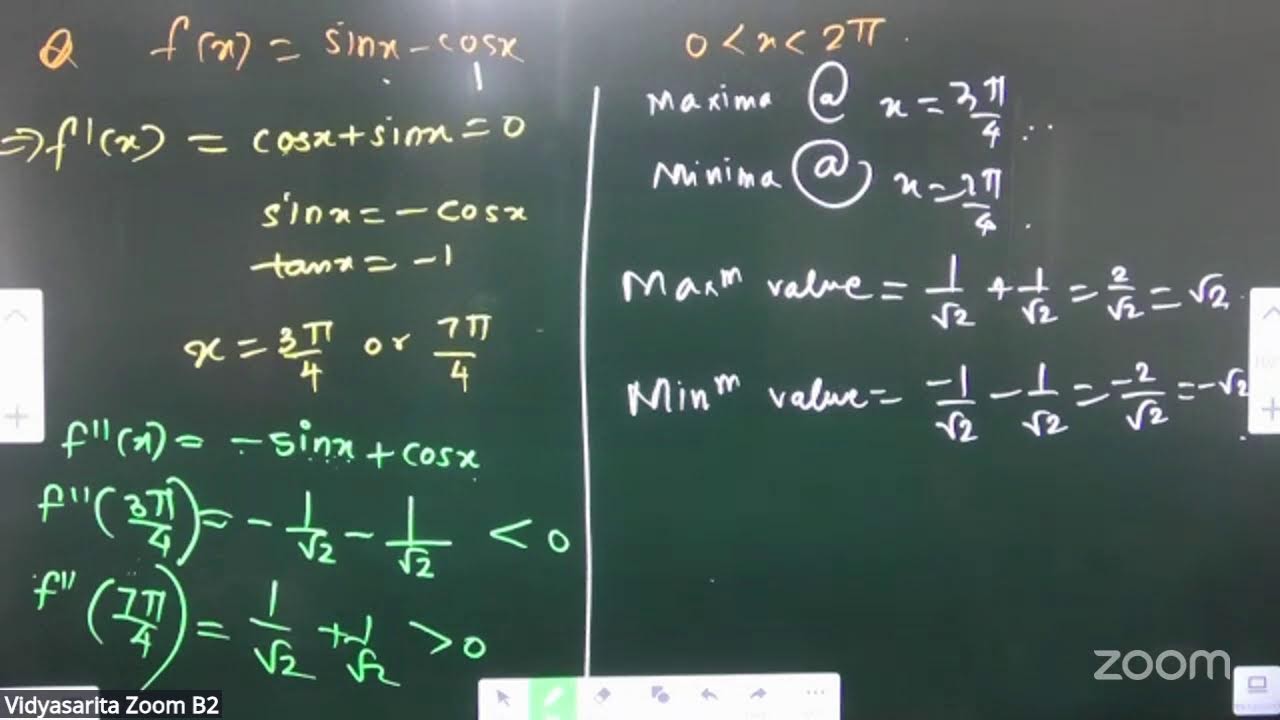 Q f(x) = sinx - cosx 0 < x < 2π
⇒ f'(x) = cosx + sinx = 0
sinx = - cosx
tanx = -1
x = 3π/4 or 7π/4
f''(x) = - sinx + cosx
f''(3π/4) = - 1/√2 - 1/√2 < 0
f''(7π/4) = 1/√2 + 1/√2 > 0
Maxima @ x = 3π/4
Minima @ x = 7π/4
Maxᵐ value = 1/√2 + 1/√2 = 2/√2 = √2
Minᵐ value = -1/√2 - 1/√2 = -2/√2 = -√2
zoom
Vidyasarita Zoom B2